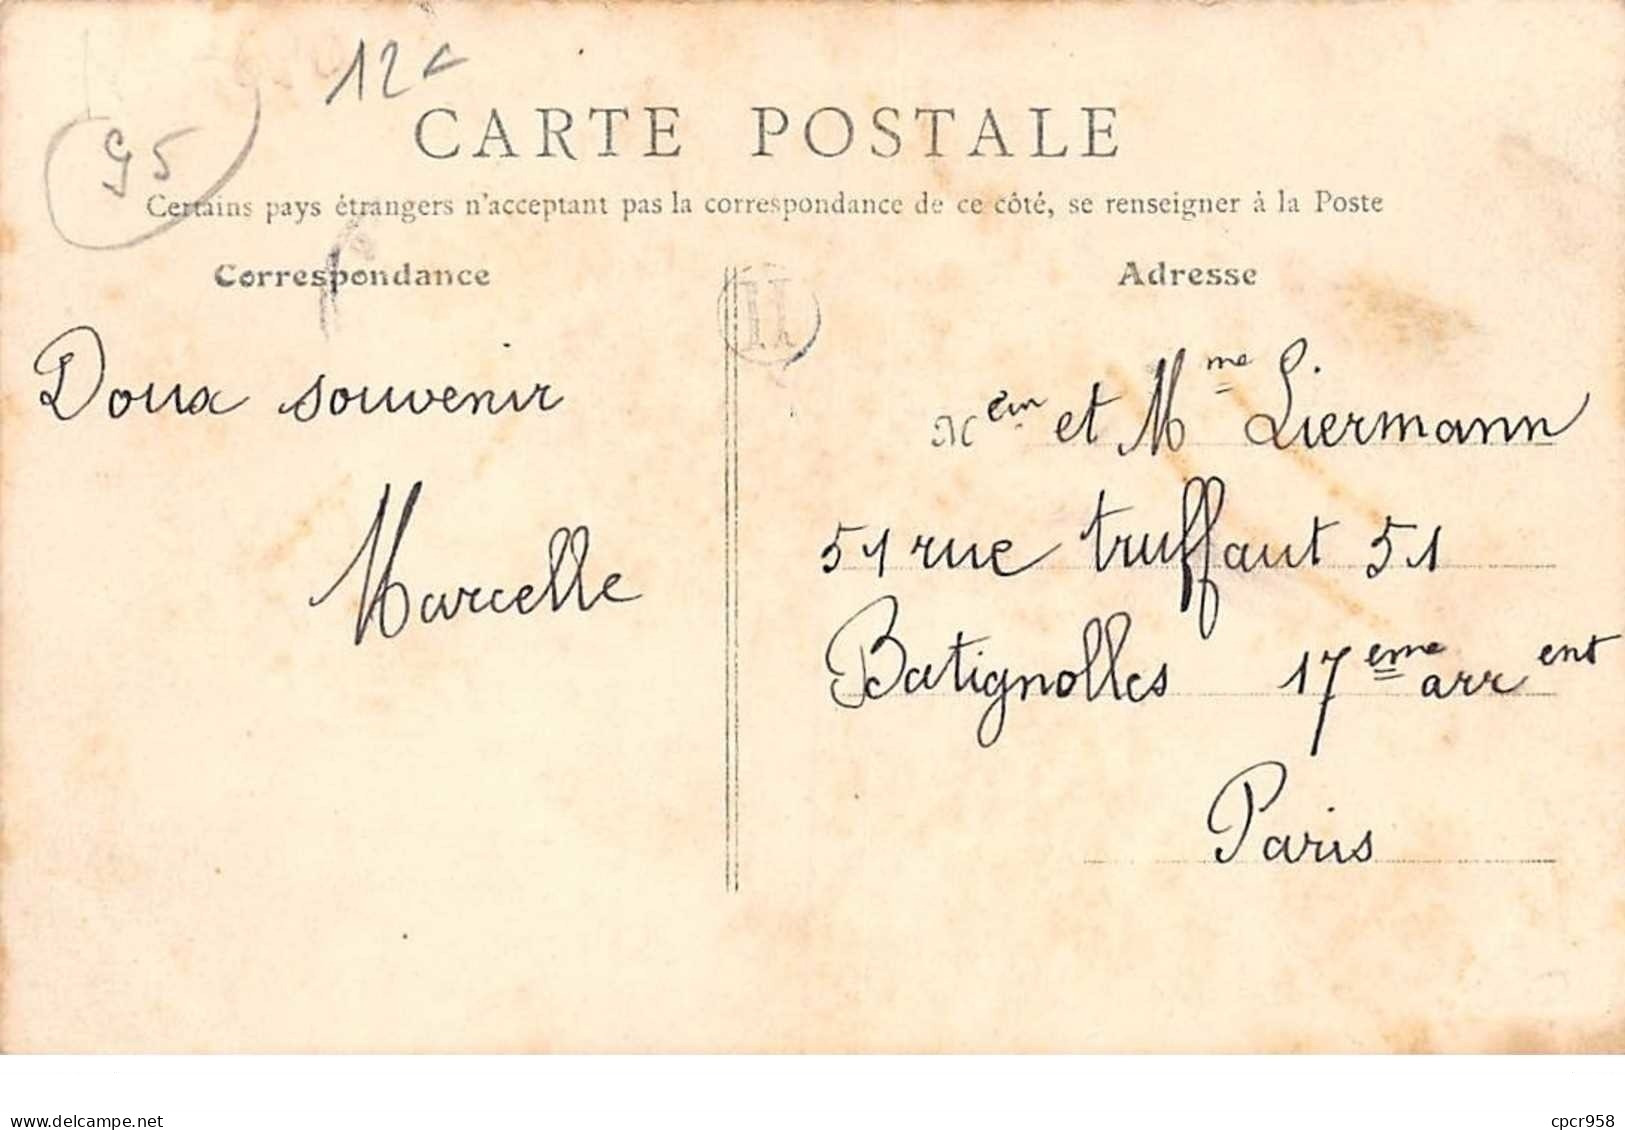 12
95
CARTE POSTALE
Certains pays étrangers n'acceptant pas la correspondance de ce côté, se renseigner à la Poste
Correspondance
Adresse
H
Doux souvenir
Marcelle
et Mme Liermann
51 rue truffaut 51
Batignolles 17eme arrent
Paris
delcampe.net
cpcr958